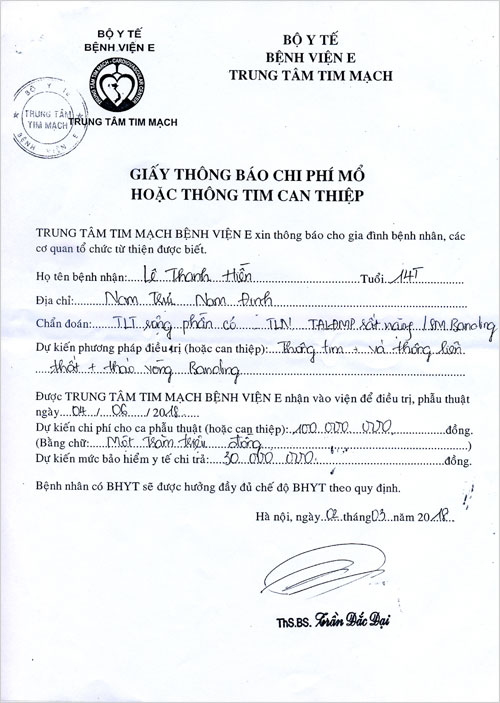 BỘ Y TẾ
BỆNH VIỆN E
CARDIOVASCULAR CENTER
TRUNG TÂM TIM MẠCH
BỘ Y TẾ
BỆNH VIỆN E
TRUNG TÂM TIM MẠCH
BỘ Y TẾ
TRUNG TÂM
TIM MẠCH
BỆNH VIỆN E
GIẤY THÔNG BÁO CHI PHÍ MỔ
HOẶC THÔNG TIM CAN THIỆP
TRUNG TÂM TIM MẠCH BỆNH VIỆN E xin thông báo cho gia đình bệnh nhân, các
cơ quan tổ chức từ thiện được biết.
Họ tên bệnh nhân: Lê Thanh Hiền Tuổi 14T
Địa chỉ: Nam Trực Nam Định
Chẩn đoán: TLT rộng phần cơ TLN TALĐMP rất nặng / SM Banding
Dự kiến phương pháp điều trị (hoặc can thiệp): Thông tim + vá thông liên
thất + tháo vòng Banding
Được TRUNG TÂM TIM MẠCH BỆNH VIỆN E nhận vào viện để điều trị, phẫu thuật
ngày 04 / 06 / 2018
Dự kiến chi phí cho ca phẫu thuật (hoặc can thiệp): 100.000.000 đồng.
(Bằng chữ: Một trăm triệu đồng)
Dự kiến mức bảo hiểm y tế chi trả: 30.000.000 đồng.
Bệnh nhân có BHYT sẽ được hưởng đầy đủ chế độ BHYT theo quy định.
Hà nội, ngày 02 tháng 03 năm 2018
ThS.BS. Trần Đắc Đại